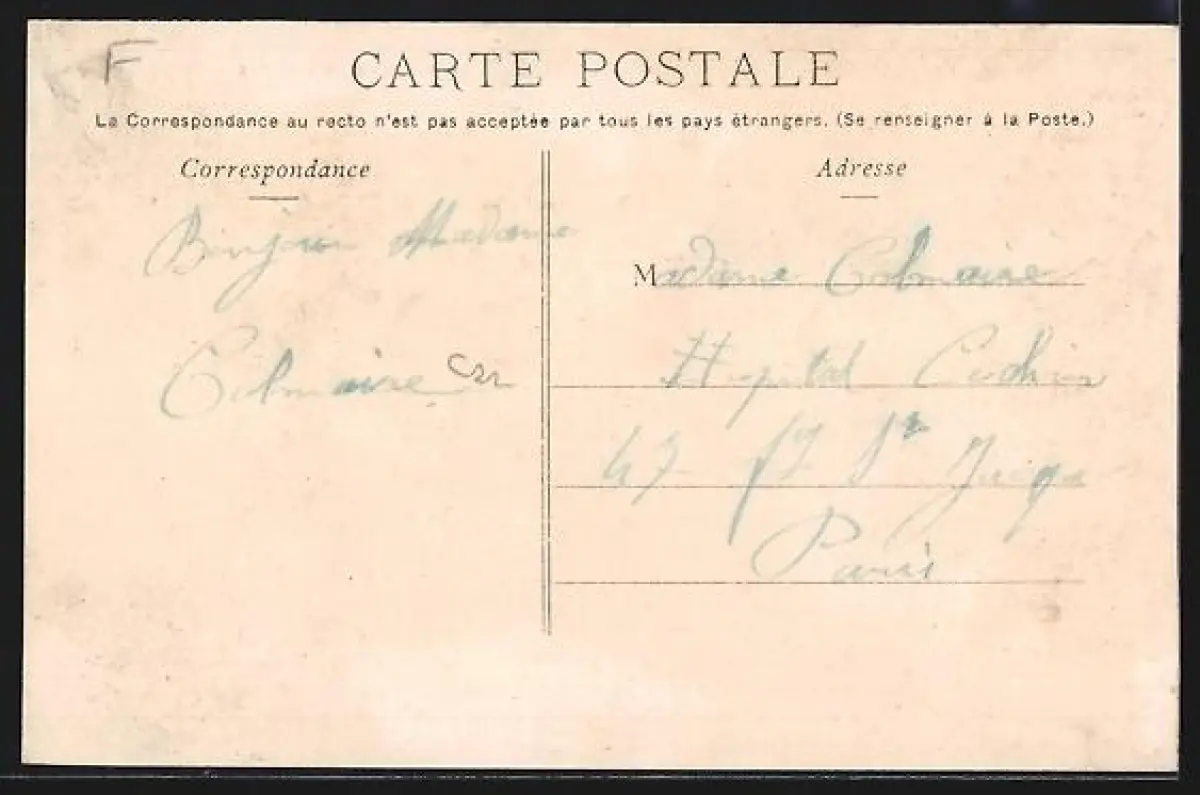 F
CARTE POSTALE
La Correspondance au recto n'est pas acceptée par tous les pays étrangers. (Se renseigner à la Poste.)
Correspondance
Bonjour Madame
Colmaire
Adresse
Madame Colmaire
Hopital Cochin
47 St
Paris